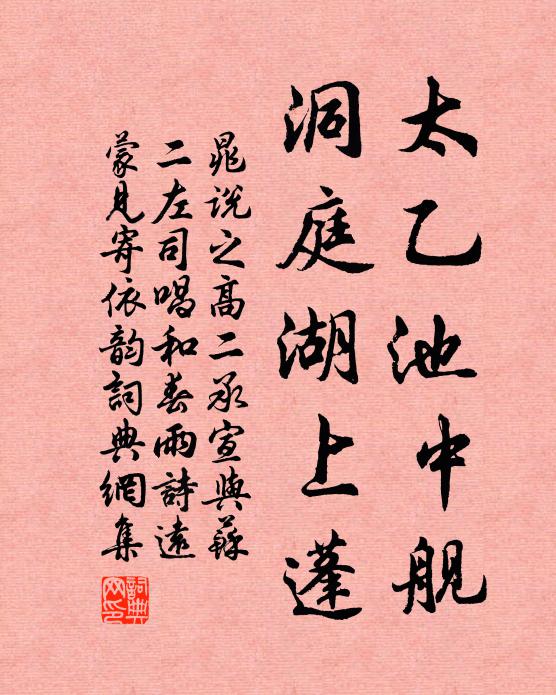 太乙池中舰
洞庭湖上蓬
晁说之高二承宣與蘇
二左司唱和春雨詩遠
蒙見寄依韵詞典網集
詞典
网印